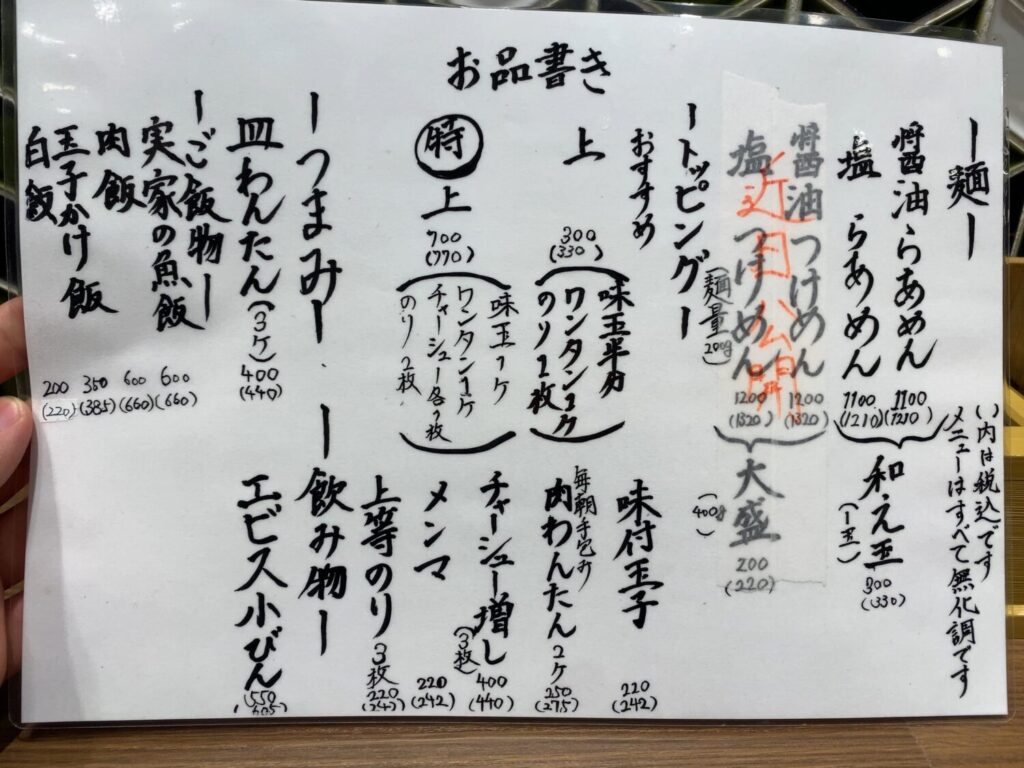 お品書き
ー麺ー
醤油らあめん 1100 (1210)
塩らあめん 1100 (1210)
和え玉 (一玉) 300 (330)
( )内は税込です
メニューはすべて無化調です
醤油つけめん 1200 (1320)
塩つけめん 1200 (1320)
近日公開
(麺量200g)
大盛 200 (220)
(400g)
ートッピングー
おすすめ
上 300 (330)
味玉半分
ワンタン1ケ
のり1枚
時上 700 (770)
味玉1ケ
ワンタン1ケ
チャーシュー各1枚
のり2枚
味付玉子 220 (242)
毎朝手包み
肉わんたん2ケ 250 (275)
チャーシュー増し (3枚) 400 (440)
メンマ 220 (242)
上等のり3枚 220 (242)
ーつまみー
皿わんたん(3ケ) 400 (440)
ー飲み物ー
エビス小びん 550 (605)
ーご飯物ー
実家の魚飯 600 (660)
肉飯 600 (660)
玉子かけ飯 350 (385)
白飯 200 (220)